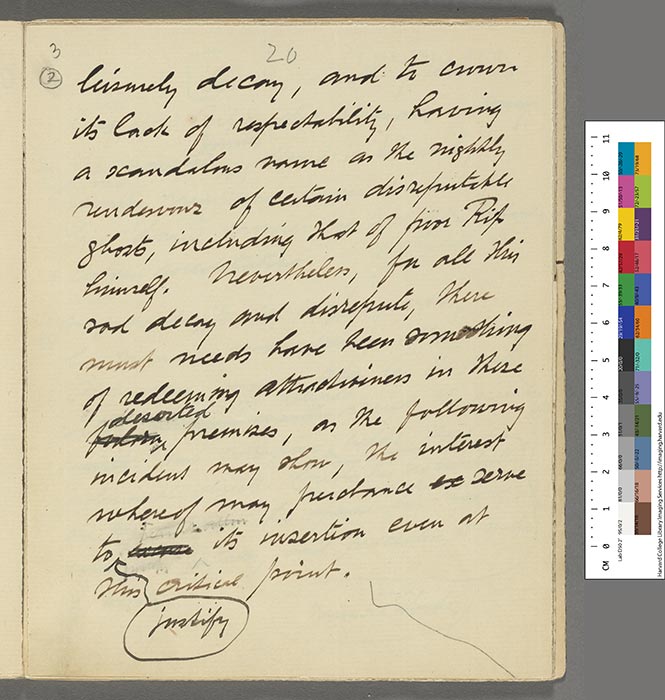 3
20
2
leisurely decay, and to crown
its lack of respectability, having
a scandalous name as the nightly
rendezvous of certain disreputable
ghosts, including that of poor Rip
himself. Nevertheless, for all this
sad decay and disrepute, there
must needs have been something
of redeeming attractiveness in these
deserted
premises, as the following
incident may show, the interest
whereof may perchance ex serve
to its insertion even at
this critical point.
justify
11
10
9
8
7
6
5
4
3
2
1
CM 0
Harvard College Library Imaging Services http://imaging.harvard.edu